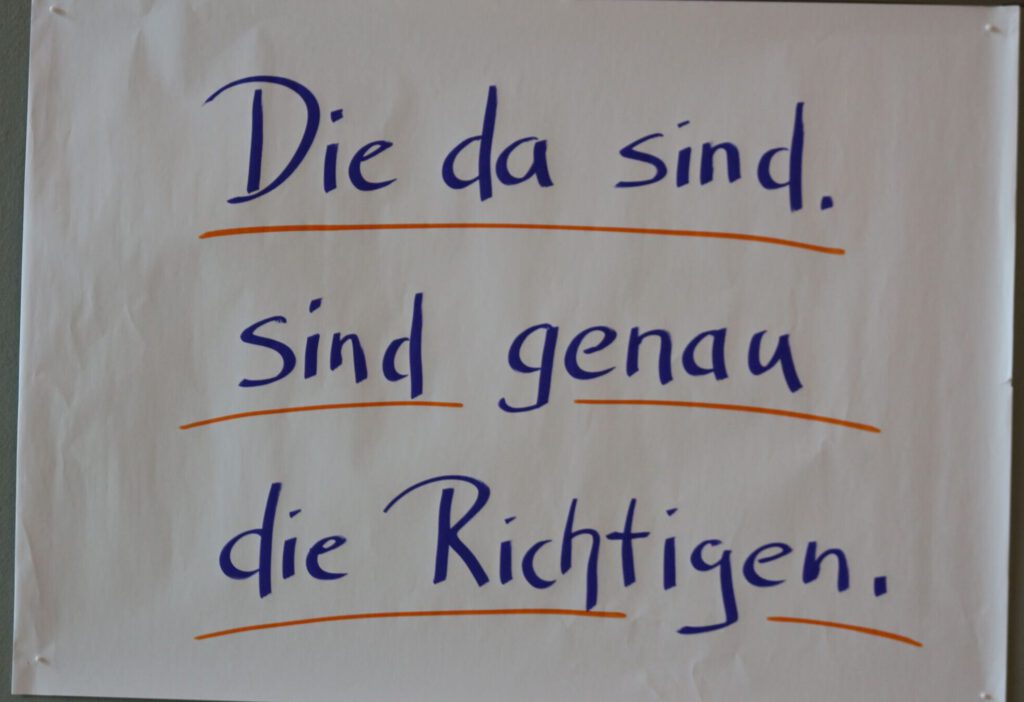 Die da sind.
sind genau
die Richtigen.